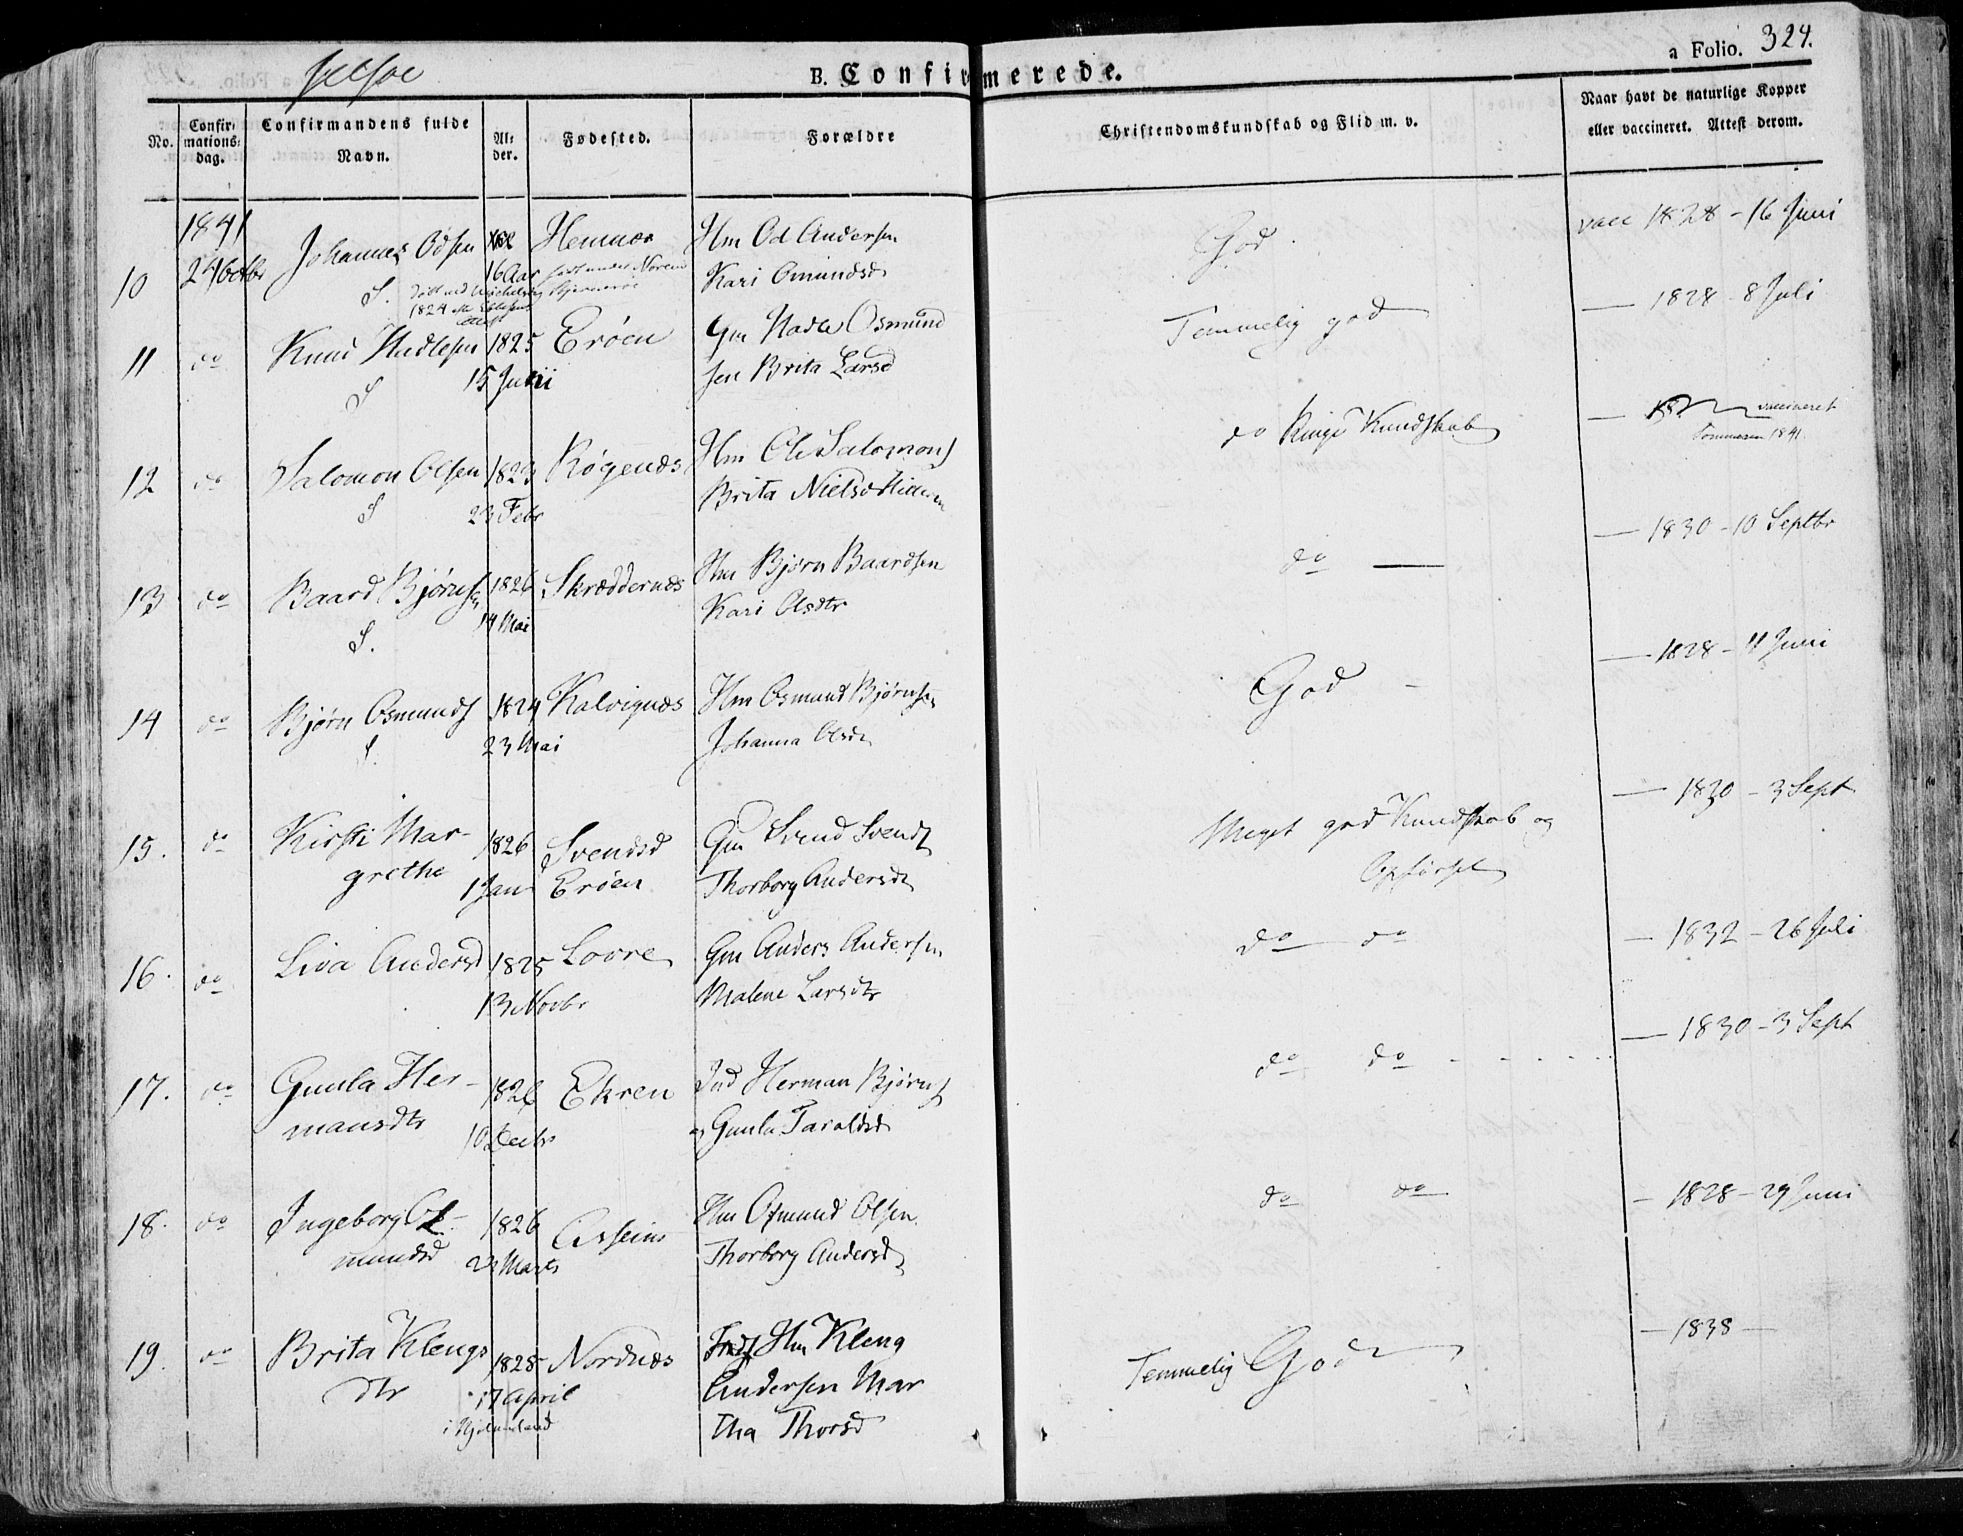 a Folio. 324.
B. Confirmerede.
No.
Confirmations-dag.
Confirmandens fulde Navn.
Al-der.
Fødested.
Forældre
Christendomskundskab og Flid m. v.
Naar havt de naturlige Kopper
eller vaccineret. Attest derom.
1841
10 24 Octbr Johannes Odsen Hm Od Andersen God vacc 1828 - 16 Juni
S. 16 Aar Kari Omundsd
1824
11 do Knud Hadlesen 1825 Erøen Gm Hadle Osmund Temmelig god — 1828 - 8 Juli
S 15 Juni sen Brita Larsd
12 do Salomon Olsen 1823 Røgenæs Hm Ole Salomons do Ringe Kundskab — vaccineret
S 23 Febr Brita Nielsd Sommeren 1841
13 do Baard Bjørns 1826 Skræddernæs Hm Bjørn Baardsen do — — 1830 - 10 Septbr
S. 14 Mai Kari Olsdtr
14 do Bjørn Osmunds 1824 Kalvignæs Hm Osmund Bjørnsen God - — 1828 - 11 Juni
S. 23 Mai Johanna Olsd
15. do Kirsti Mar- 1826 Svendsd Gm Svend Svends Meget god Kundskab og — 1830 - 3 Sept
grethe 1 Jan Erøen Thorborg Andersd Opførsel
16. do Siva Andersd 1825 Lovre Gm Anders Andersen do do — 1832 - 26 Juli
13 Novbr Malene Larsdtr
17. do Gunla Her- 1826 Ekren Ind Herman Bjørns do do — 1830 - 3 Sept
mansdtr 10 Decbr og Gunla Taraldsd
18. do Ingeborg Os- 1826 Hm Osmund Olsen do do — 1828 - 29 Juni
mundsd 23 Marts Thorborg Andersd
19. do Brita Klengs 1825 Nordnæs Hm Kleng Temmelig God — 1838 —
dtr 17 April Andersen Mar
i tha Thorsd